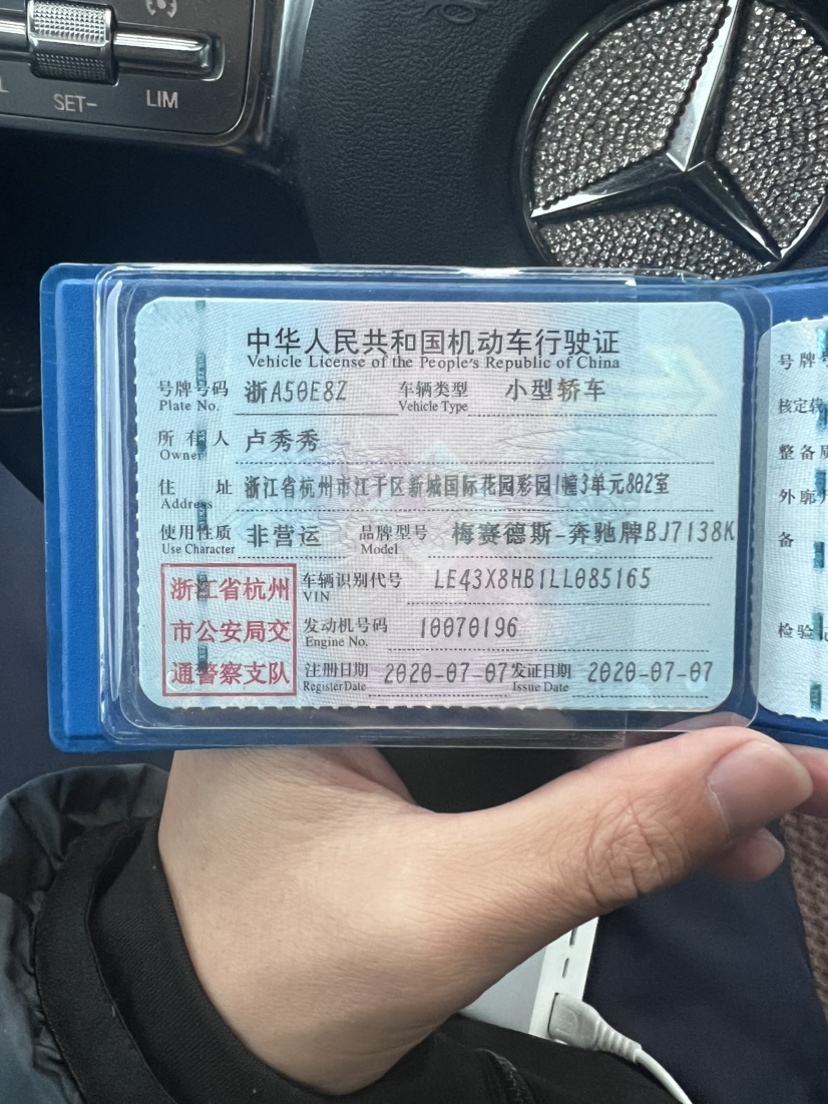 SET-
LIM
中华人民共和国机动车行驶证
Vehicle License of the People's Republic of China
号牌号码 浙A50E8Z 车辆类型 小型轿车
Plate No. Vehicle Type
所有人 卢秀秀
Owner
住址 浙江省杭州市江干区新城国际花园彩园1幢3单元802室
Address
使用性质 非营运 品牌型号 梅赛德斯-奔驰牌BJ7138K
Use Character Model
浙江省杭州
市公安局交
通警察支队
车辆识别代号 LE43X8HB1LL085165
VIN
发动机号码 10070196
Engine No.
注册日期 2020-07-07 发证日期 2020-07-07
Register Date Issue Date
号牌
核定载
整备质
外廓
备
检验